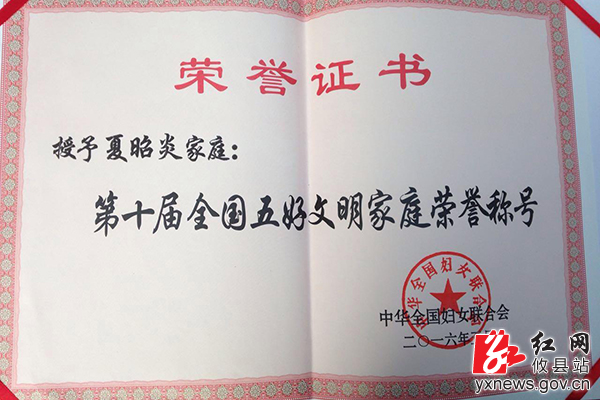 荣誉证书
授予夏昭炎家庭:
第十届全国五好文明家庭荣誉称号
中华全国妇女联合会
中华全国妇女联合会
二〇一六年
红网
攸县站
yxnews.gov.cn